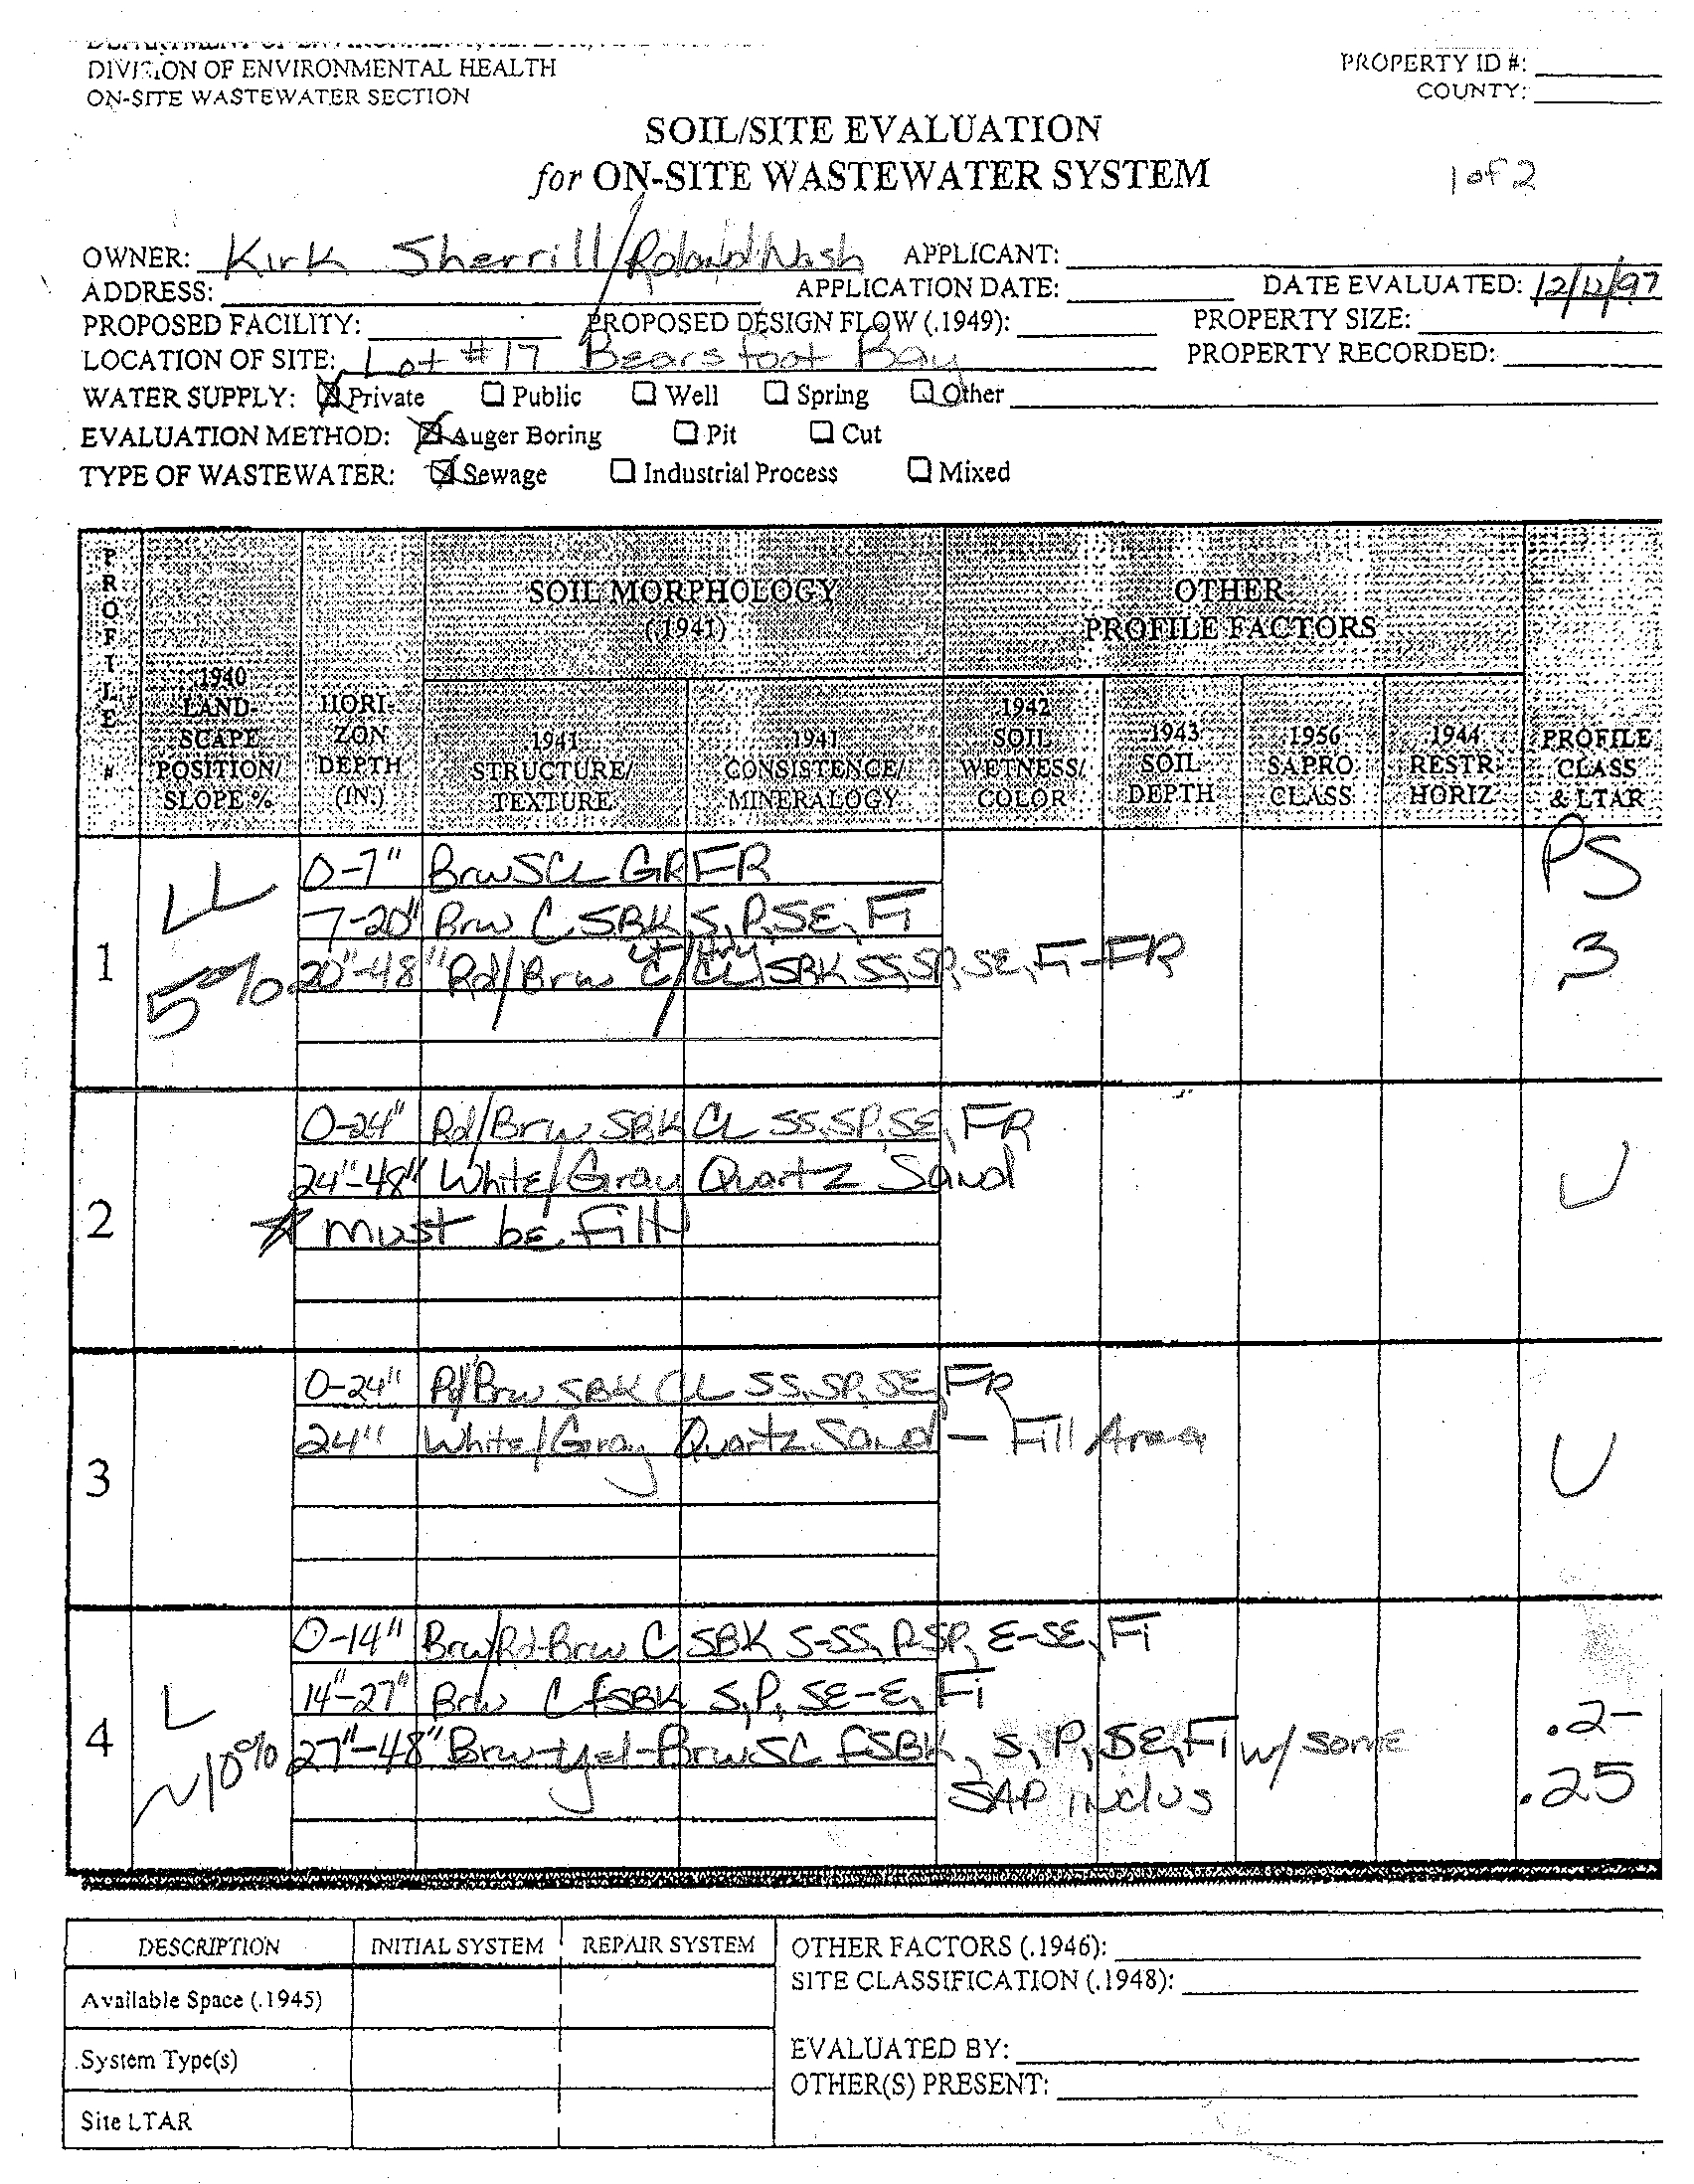 DIVISION OF ENVIRONMENTAL HEALTH
ON-SITE WASTEWATER SECTION
PROPERTY ID #:
COUNTY:
SOIL/SITE EVALUATION
for ON-SITE WASTEWATER SYSTEM
1 of 2
OWNER: Kirk Sherrill/Roland Nash APPLICANT:
ADDRESS: APPLICATION DATE: DATE EVALUATED: 12/12/97
PROPOSED FACILITY: PROPOSED DESIGN FLOW (.1949): PROPERTY SIZE:
LOCATION OF SITE: Lot #17 Bearsfoot Bay PROPERTY RECORDED:
WATER SUPPLY: Private Public Well Spring Other
EVALUATION METHOD: Auger Boring Pit Cut
TYPE OF WASTEWATER: Sewage Industrial Process Mixed
PROFILE #
.1940 LAND-SCAPE POSITION/ SLOPE %
HORI-ZON DEPTH (IN.)
SOIL MORPHOLOGY (.1941)
.1941 STRUCTURE/ TEXTURE
.1941 CONSISTENCE/ MINERALOGY
OTHER PROFILE FACTORS
.1942 SOIL WETNESS/ COLOR
.1943 SOIL DEPTH
.1956 SAPRO CLASS
.1944 RESTR HORIZ
PROFILE CLASS & LTAR
1 LL 5%
0-7" Brw SCL GR FR
7-20" Brw C SBK S, P, SE, Fi
20"-48" Rd/Brw C/CL SBK SS, SP, SE, Fi-FR
PS
.3
2
0-24" Rd/Brw SBK CL SS, SP, SE, FR
24"-48" White/Gray Quartz Sand
must be Fill
U
3
0-24" Rd/Brw SBK CL SS, SP, SE, FR
24" White/Gray Quartz Sand - Fill Area
U
4 L ~10%
0-14" Brw/Rd-Brw C SBK S-SS, P-SP, E-SE, Fi
14"-27" Brw C fSBK S, P, SE-E, Fi
27"-48" Brw-yel-Brw SC fSBK, S, P, SE, Fi w/ some
SAP inclus
.2-
.25
DESCRIPTION INITIAL SYSTEM REPAIR SYSTEM
Available Space (.1945)
System Type(s)
Site LTAR
OTHER FACTORS (.1946):
SITE CLASSIFICATION (.1948):
EVALUATED BY:
OTHER(S) PRESENT: